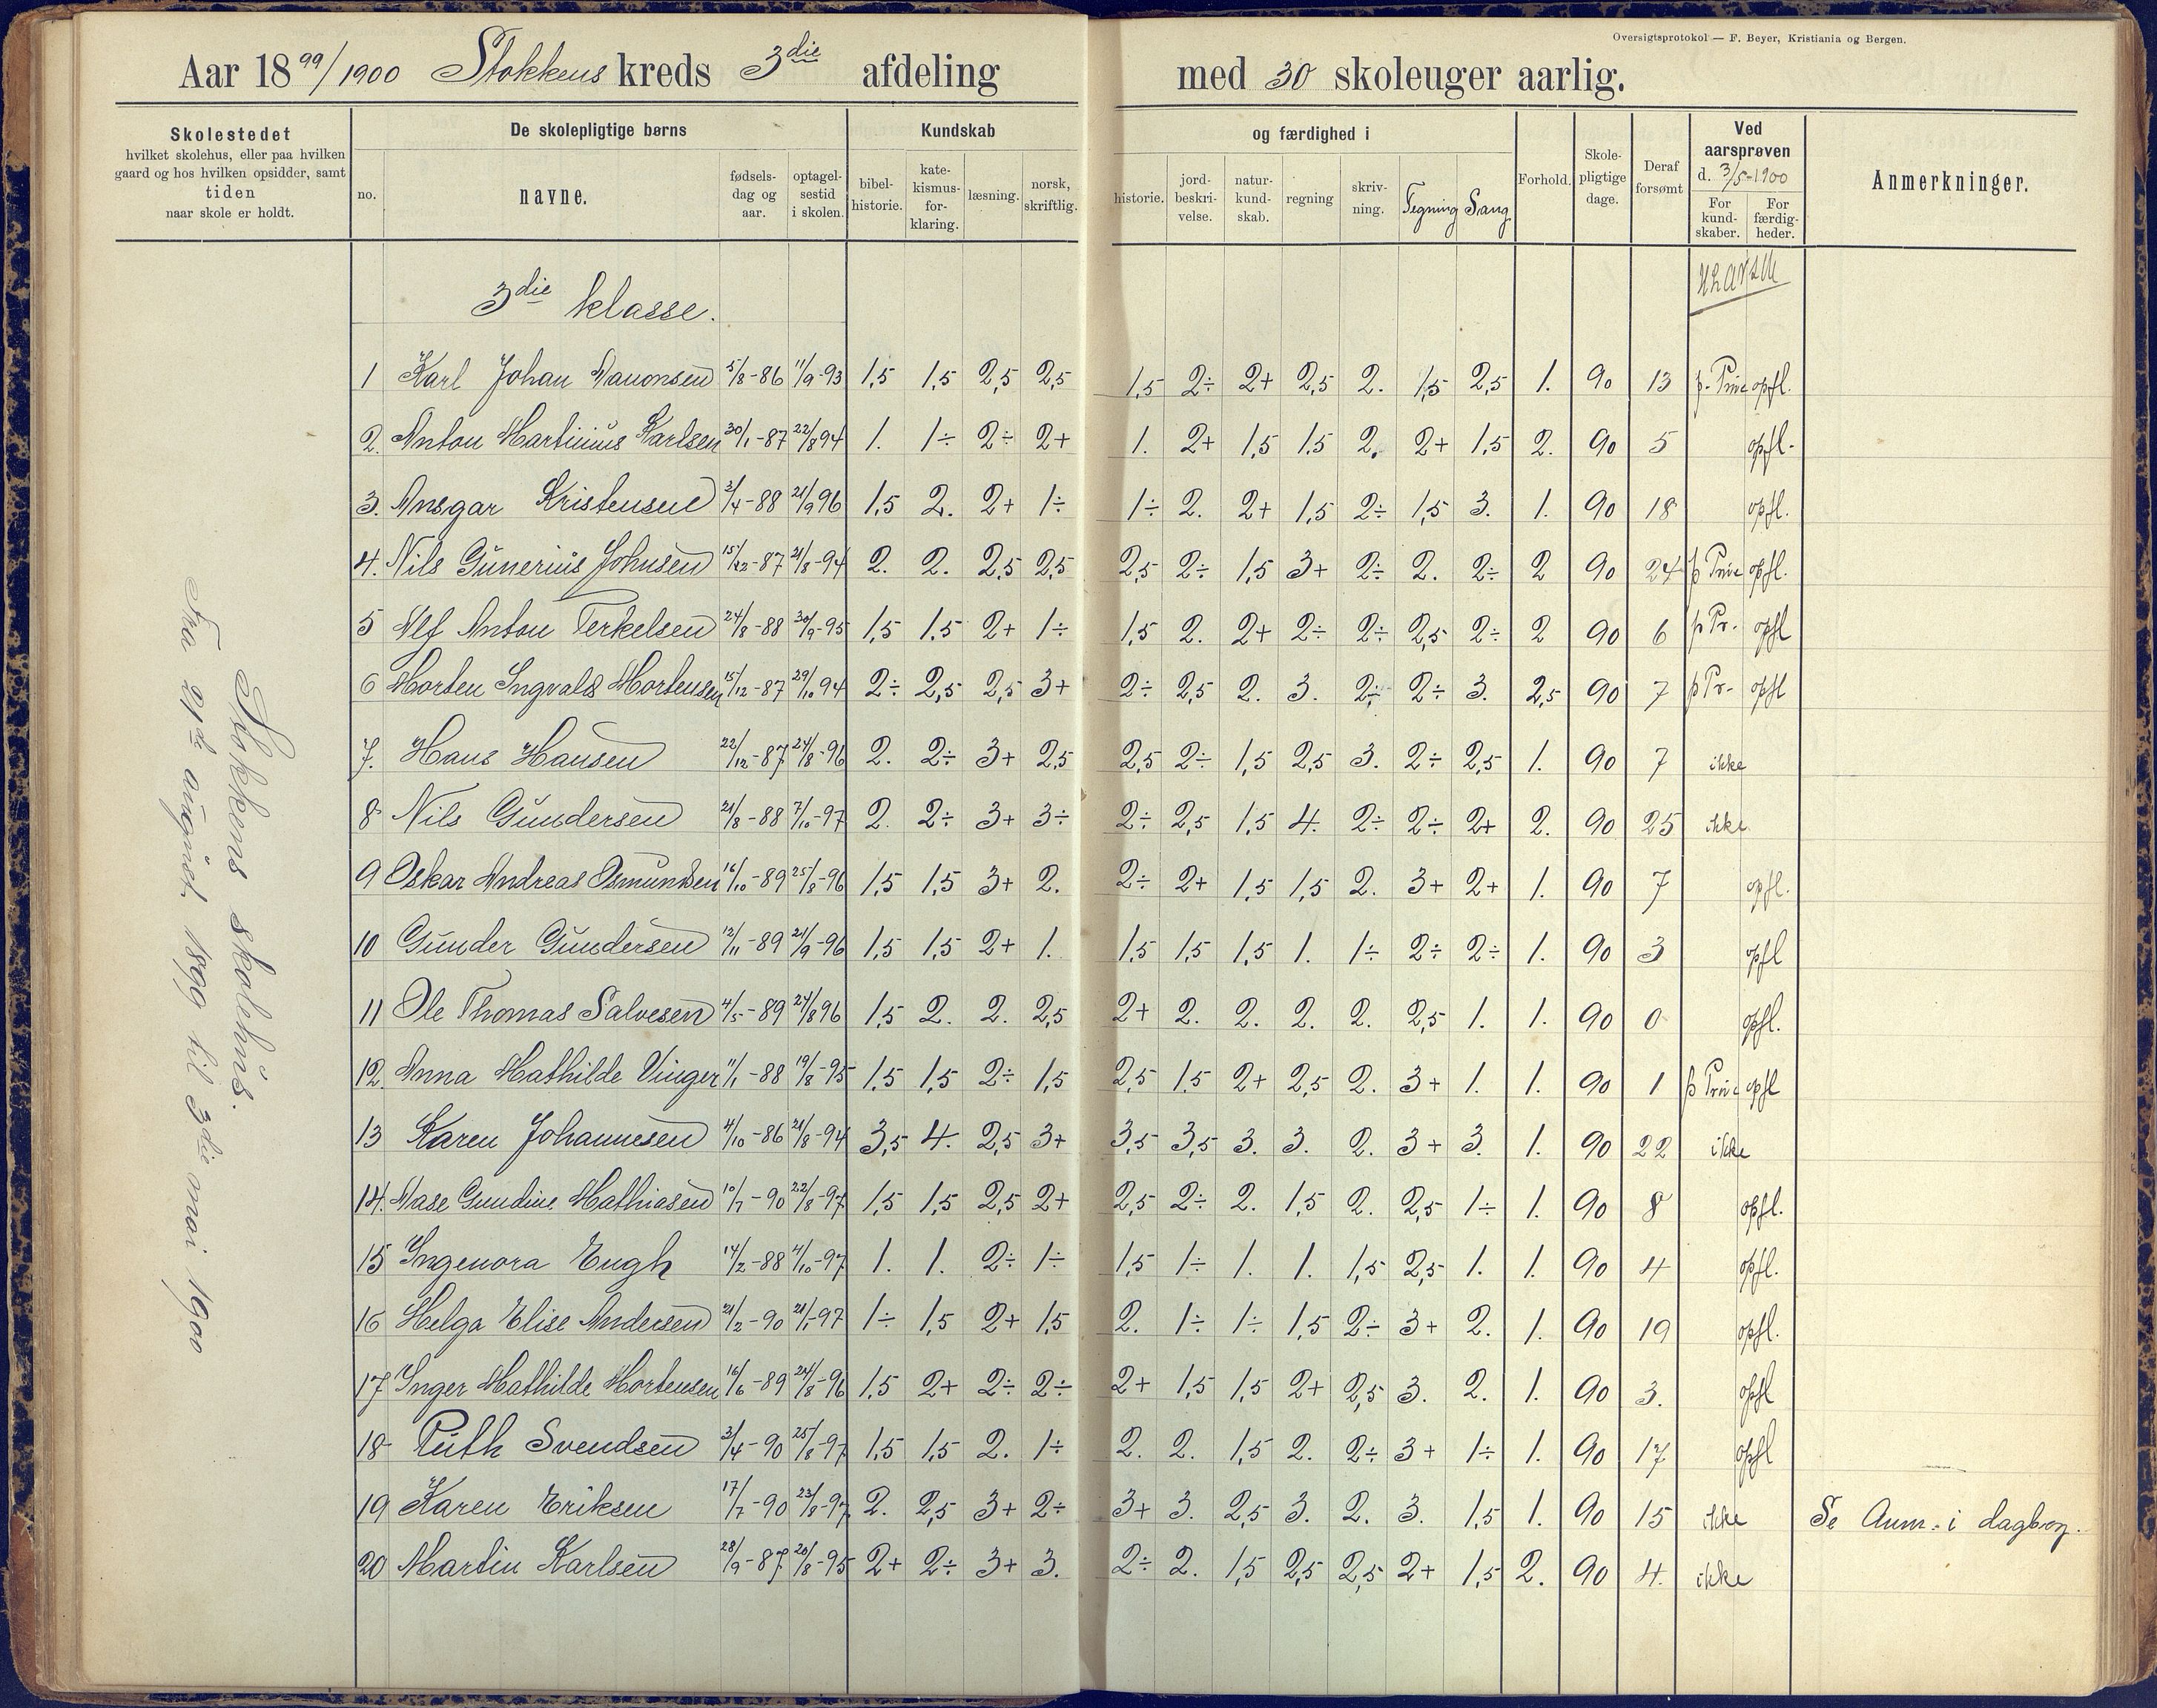 Oversigtsprotokol — F. Beyer, Kristiania og Bergen.
Aar 18 99/1900 Stokkens kreds 3die afdeling med 30 skoleuger aarlig.
Skolestedet
hvilket skolehus, eller paa hvilken
gaard og hos hvilken opsidder, samt
tiden
naar skole er holdt.
De skolepligtige børns
no.
navne.
fødsels-
dag og
aar.
optagel-
sestid
i skolen.
Kundskab og færdighed i
bibel-
historie.
kate-
kismus-
for-
klaring.
læsning.
norsk,
skriftlig.
historie.
jord-
beskri-
velse.
natur-
kund-
skab.
regning
skriv-
ning.
Tegning
Sang
Forhold.
Skole-
pligtige
dage.
Deraf
forsømt
Ved
aarsprøven
d. 3/5-1900
For
kund-
skaber.
For
færdig-
heder.
Anmerkninger.
Stokkens skolehús.
Fra 21de august 1899 til 3die mai 1900
3die klasse.
1 Karl Johan Aanonsen 5/8-86 11/9-93 1,5 1,5 2,5 2,5 1,5 2÷ 2+ 2,5 2. 1,5 2,5 1. 90 13 opfl.
2. Anton Martinius Karlsen 30/1-87 22/8 94 1. 1÷ 2÷ 2+ 1. 2+ 1,5 1.5 2. 2+ 1,5 2. 90 5 opfl.
3. Ansgar Kristensen 3/4-88 21/9 96 1,5 2. 2+ 1÷ 1÷ 2. 2+ 1,5 2÷ 1,5 3. 1. 90 18 opfl.
4. Nils Gunerius Johnsen 15/12-87 21/8-94 2. 2. 2,5 2,5 2,5 2÷ 1,5 3+ 2÷ 2. 2÷ 2 90 24 opfl.
5 Alf Anton Terkelsen 24/8-88 30/9-95 1,5 1,5 2+ 1÷ 1,5 2. 2+ 2÷ 2÷ 2,5 2÷ 2 90 6 p Pr. opfl
6 Morten Ingvald Mortensen 15/12-87 29/10 94 2÷ 2,5 2,5 3+ 2÷ 2,5 2. 3. 2÷ 2÷ 3. 2,5 90 7 p Pr. opfl
7. Hans Hansen 22/12-87 24/8-96 2. 2÷ 3+ 2,5 2,5 2÷ 1,5 2,5 3. 2÷ 2,5 1. 90 7 ikke
8 Nils Gundersen 21/8-88 7/10-97 2. 2÷ 3+ 3÷ 2÷ 2,5 1,5 4. 2÷ 2÷ 2+ 2. 90 25 ikke
9 Oskar Andreas Osmundsen 16/10-89 25/8-96 1,5 1,5 3+ 2. 2÷ 2+ 1,5 1,5 2. 3+ 2+ 1. 90 7 opfl.
10 Gunder Gundersen 12/11-89 21/9-96 1,5 1,5 2+ 1. 1,5 1,5 1,5 1. 1÷ 2÷ 2÷ 1. 90 3 opfl
11 Ole Thomas Salvesen 4/5-89 24/8 96 1,5 2. 2. 2,5 2+ 2. 2. 2. 2. 2,5 1. 1. 90 0 opfl.
12. Anna Mathilde Vinger 11/1-88 19/8-95 1,5 1,5 2÷ 1,5 2,5 1.5 2+ 2,5 2. 3+ 1. 1. 90 1 opfl
13 Karen Johannesen 4/10-86 21/8-94 3,5 4. 2,5 3+ 3,5 3,5 3. 3. 2. 3+ 3. 1. 90 22 ikke
14. Aase Gundine Mathiasen 10/7-90 22/8-97 1,5 1,5 2,5 2+ 2,5 2÷ 2. 1,5 2. 2,5 1÷ 1. 90 8 opfl.
15 Ingenora Engh 14/2-88 4/10-97 1. 1. 2÷ 1÷ 1,5 1÷ 1. 1. 1,5 2,5 1. 1. 90 4 opfl.
16 Helga Elise Andersen 21/2-90 21/1-97 1÷ 1,5 2+ 1,5 2. 1÷ 1÷ 1,5 2÷ 3+ 2. 1. 90 19 opfl.
17 Inger Mathilde Mortensen 16/6-89 24/8-96 1,5 2+ 2÷ 2÷ 2+ 1,5 1,5 2+ 2,5 3. 2. 1. 90 3. opfl
18 Ruth Svendsen 3/4-90 25/8-97 1,5 1,5 2. 1÷ 2. 2. 1,5 2. 2÷ 3+ 1÷ 1. 90 17 opfl
19 Karen Eriksen 17/7-90 23/8-97 2. 2,5 3+ 2÷ 3+ 3. 2,5 3. 2. 3. 1,5 1. 90 15 ikke Se Anm. i dagbog.
20 Martin Karlsen 28/9-87 20/8-95 2+ 2÷ 3+ 3. 2÷ 2. 1,5 2,5 2,5 2+ 1,5 2. 90 4. ikke